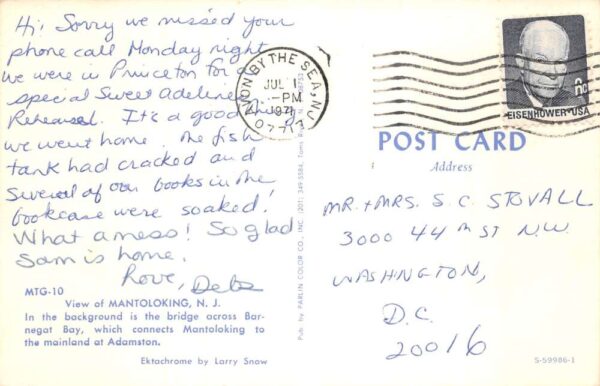 Hi! Sorry we missed your
phone call Monday night
we were in Princeton for a
special Sweet Adelines
Rehearsal. It's a good thing
we went home. The fish
tank had cracked and
several of our books in the
bookcase were soaked!
What a mess! So glad
Sam is home.
Love, Debs
MTG-10
View of MANTOLOKING, N. J.
In the background is the bridge across Bar-
negat Bay, which connects Mantoloking to
the mainland at Adamston.
Ektachrome by Larry Snow
Pub. by PARLIN COLOR CO., INC. (201) 349-5584, Toms
AVON BY THE SEA, N.J.
JUL 1
-PM
1971
07717
6c
EISENHOWER·USA
POST CARD
Address
MR. + MRS. S. C. STOVALL
3000 44TH ST N.W.
WASHINGTON,
D.C.
20016
S-59986-1